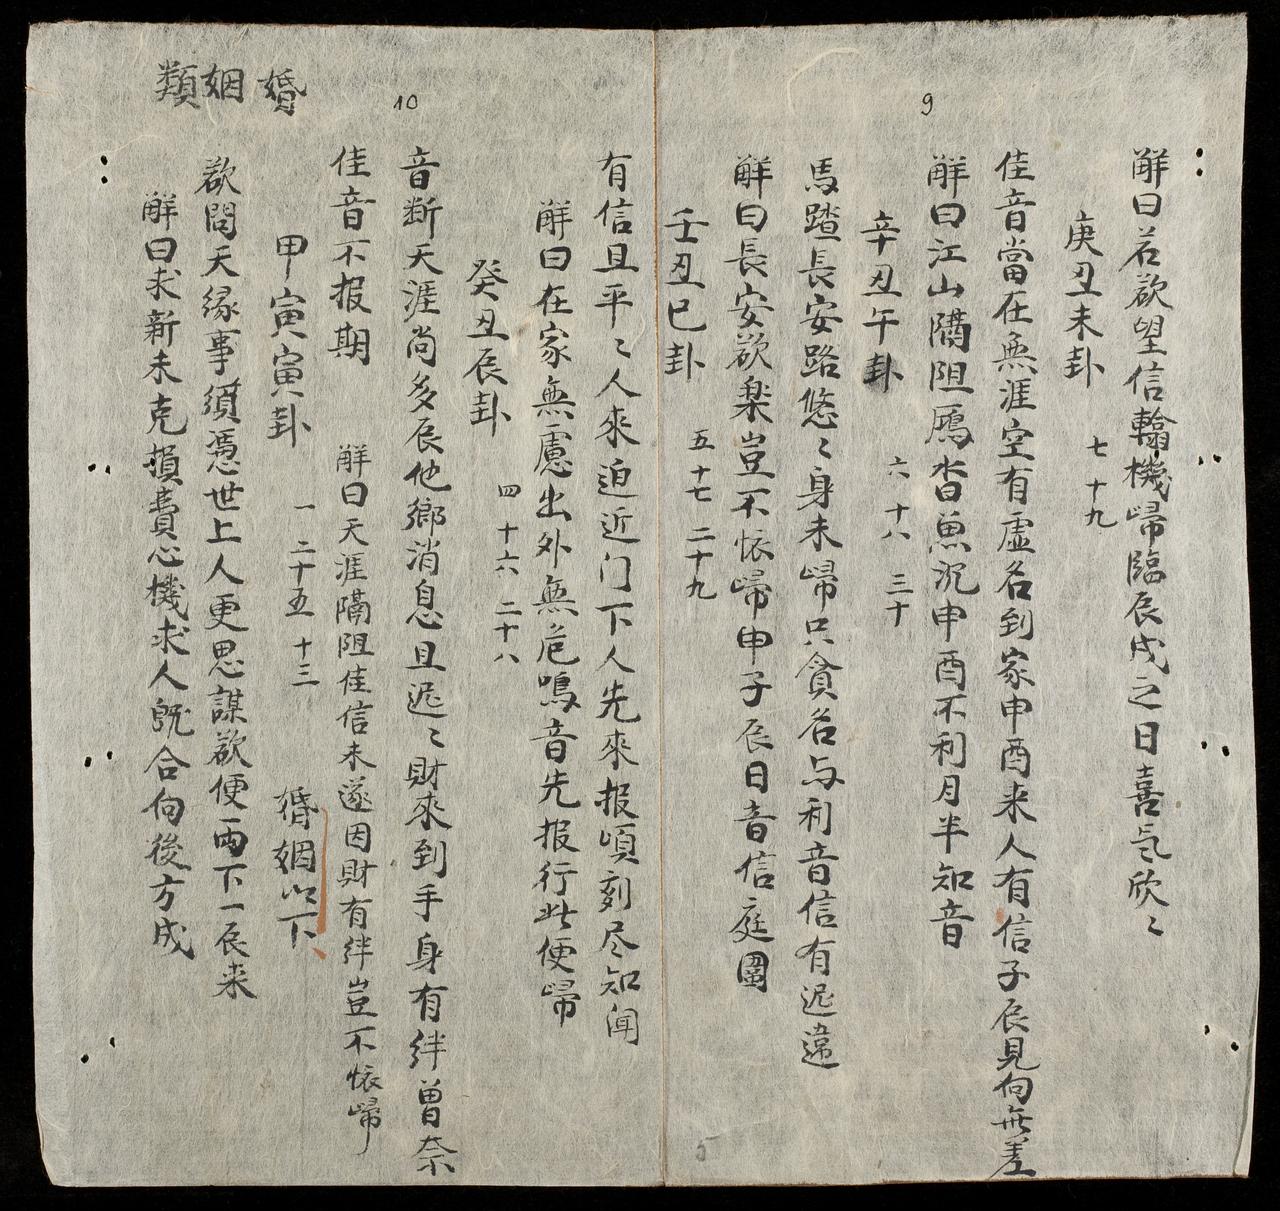 9
解曰若欲望信翰機歸臨辰戌之日喜氣欣〻
庚丑未卦 七 十九
佳音當在無涯空有虛名到家申酉来人有信子辰見向無差
解曰江山隔阻鴈杳魚沉申酉不利月半知音
辛丑午卦 六 十八 三十
馬踏長安路悠〻身未歸只貪名与利音信有迟違
解曰長安欲楽豈不懐歸申子辰日音信庭圍
壬丑巳卦 五 十七 二十九
有信且平〻人來迫近门下人先來报頃刻尽知闻
10
解曰在家無慮出外無危鳴音先报行此便歸
癸丑辰卦 四 十六 二十八
音断天涯尚多辰他鄉消息且迟〻財來到手身有絆曽奈
佳音不报期 解曰天涯隔阻佳信未遂因財有絆豈不懐歸
甲寅寅卦 一 二十五 十三 婚姻以下
欲問天縁事須憑世上人更思謀欲便両下一辰来
解曰求新未克損費心機求人既合向後方成
婚姻類
5